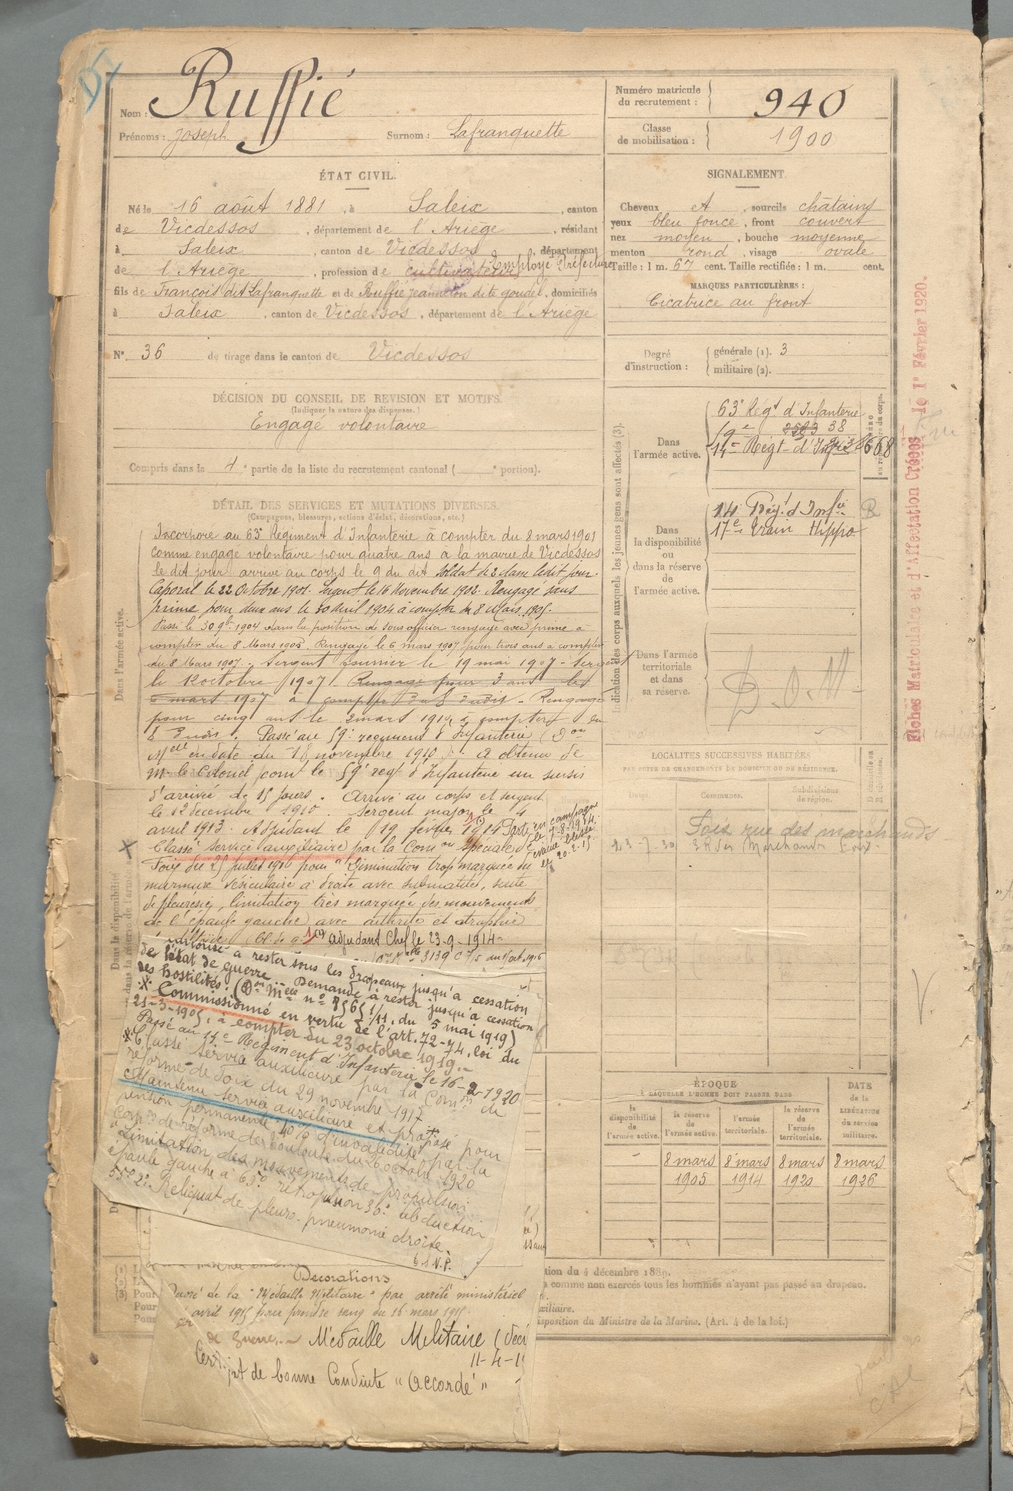 Nom : Ruffié
Prénoms : Joseph Surnom : Lafranquette
Numéro matricule du recrutement : 940
Classe de mobilisation : 1900
ÉTAT CIVIL.
Né le 16 août 1881, à Saleix, canton
de Vicdessos, département de l'Ariège, résidant
à Saleix, canton de Vicdessos, département
de l'Ariège, profession de cultivateur Employé Préfecture
fils de François dit Lafranquette et de Ruffié Jeanneton dite goudel, domiciliés
à Saleix, canton de Vicdessos, département de l'Ariège
N° 36 de tirage dans le canton de Vicdessos
SIGNALEMENT.
Cheveux et, sourcils châtains
yeux bleu foncé, front couvert
nez moyen, bouche moyenne
menton rond, visage ovale
Taille : 1 m. 67 cent. Taille rectifiée : 1 m. cent.
MARQUES PARTICULIÈRES :
Cicatrice au front
Degré d'instruction : générale (1). 3
militaire (2).
DÉCISION DU CONSEIL DE REVISION ET MOTIFS.
(Indiquer la nature des dispenses.)
Engagé volontaire
Compris dans la 4e partie de la liste du recrutement cantonal ( portion).
DÉTAIL DES SERVICES ET MUTATIONS DIVERSES.
(Campagnes, blessures, actions d'éclat, décorations, etc.)
Dans l'armée active.
Incorporé au 63e Régiment d'Infanterie à compter du 8 mars 1901
comme engagé volontaire pour quatre ans à la mairie de Vicdessos
le dit jour arrivé au corps le 9 du dit soldat de 2e classe ledit jour.
Caporal le 22 Octobre 1901. Sergent le 16 Novembre 1902. Rengagé sans
prime pour deux ans le 30 Avril 1904 à compter du 8 Mars 1905.
Passé le 30 9bre 1904 dans la position de sous officier rengagé avec prime à
compter du 8 Mars 1905 Rengagé le 6 mars 1907 pour trois ans à compter
du 8 Mars 1907. Sergent fourrier le 19 mai 1907 -
le 1 octobre 1907. Rengagé pour 3 ans le
6 mars 1907 à compter du 8 dudit. Rengagé
pour cinq ans le 2 mars 1910 à compter du
8 dudit. Passé au 59e régiment d'Infanterie (Don
Melle en date du 18 novembre 1910). A obtenu de
Mr le Colonel comt le 59e regt d'Infanterie un sursis
d'arrivée de 15 jours. Arrivé au corps et sergent
le 12 décembre 1910. Sergent major le 4
avril 1913. Adjudant le 19 février 1914 Parti en campagne
le 7.8.1914.
Evacué blessé
le 20-2-15
Classé Service auxiliaire par la Comon Spéciale de
Foix du 25 juillet 1916 pour "Diminution trop marquée du
murmure vésiculaire à droite avec submatité, suite
de pleurésie, limitation très marquée des mouvements
de l'épaule gauche avec arthrite et atrophie
adjudant Chef le 23-9-1914
autorisé à rester sous les drapeaux jusqu'à cessation
de l'état de guerre. Demande à rester jusqu'à cessation
des hostilités (Don Mlle n° 8565 1/11. du 5 mai 1919)
Commissionné en vertu de l'art. 72-74, loi du
21-3-1905, à compter du 23 octobre 1919.
Passé au 11e Régiment d'Infanterie le 16-2-1920
Classé Service auxiliaire par la Comon de
réforme de Foix du 29 novembre 1917
Maintenu service auxiliaire et proposé pour
pension permanente 40% d'invalidité par la
Con de réforme de Toulouse du 6 octobre 1920
Limitation des mouvements de propulsion
épaule gauche à 65° rétropulsion 36° abduction
55° 2° Reliquat de pleuro-pneumonie droite.
Décorations
Décoré de la "Médaille Militaire" par arrêté ministériel
avril 1915 pour prendre rang du 16 mars 1915
de Guerre. Médaille Militaire (décr
11-4-1
Certificat de bonne Conduite "Accordé"
Indication des corps auxquels les jeunes gens sont affectés (3).
NUMÉRO au répertoire du corps.
Dans l'armée active.
63e Régt d'Infanterie
59e 38
14e Régt d'Infrie 668
Dans la disponibilité ou dans la réserve de l'armée active.
14 Régt d'Infie
17e Train Hippo
Dans l'armée territoriale et dans sa réserve.
D.O.M
LOCALITÉS SUCCESSIVES HABITÉES
PAR SUITE DE CHANGEMENTS DE DOMICILE OU DE RÉSIDENCE.
Dates. Communes. Subdivisions de région.
Foix rue des marchands
ÉPOQUE
À LAQUELLE L'HOMME DOIT PASSER DANS
la disponibilité de l'armée active.
la réserve de l'armée active.
l'armée territoriale.
la réserve de l'armée territoriale.
DATE de la LIBÉRATION du service militaire.
8 mars 1905
8 mars 1914
8 mars 1920
8 mars 1926
tion du 4 décembre 1889.
comme non exercés tous les hommes n'ayant pas passé au drapeau.
xiliaire.
isposition du Ministre de la Marine. (Art. 4 de la loi.)
Fiches Matriculaire et d'Affectation Créées le 1er Février 1920.